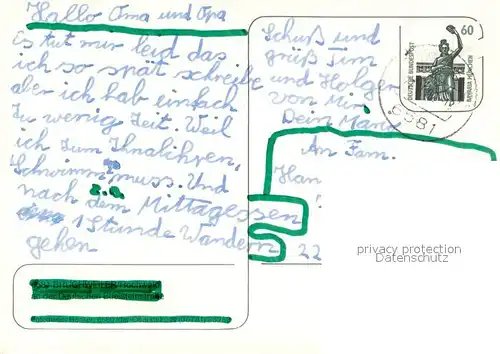 Hallo Oma und Opa
Es tut mir leid das
ich so spät schreibe
aber ich hab einfach
zu wenig Zeit. Weil
ich zum
Schwimm muss. Und
nach dem Mittagessen
1 Stunde Wandern
gehen
Schuß und
grüß Tim
und Holger
von Mir
Dein
An Fam.
Han
22
60
DEUTSCHE BUNDESPOST
BAVARIA MÜNCHEN
8581
privacy protection
Datenschutz